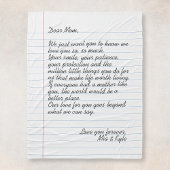 Dear Mom,
We just want you to know we
love you so, so much.
Your smile, your patience,
your protection and the
million little things you do for
us that make life worth living.
If everyone had a mother like
you, the world would be a
better place.
Our love for you goes beyond
what we can say.
Love you forever,
Mia & Kyle